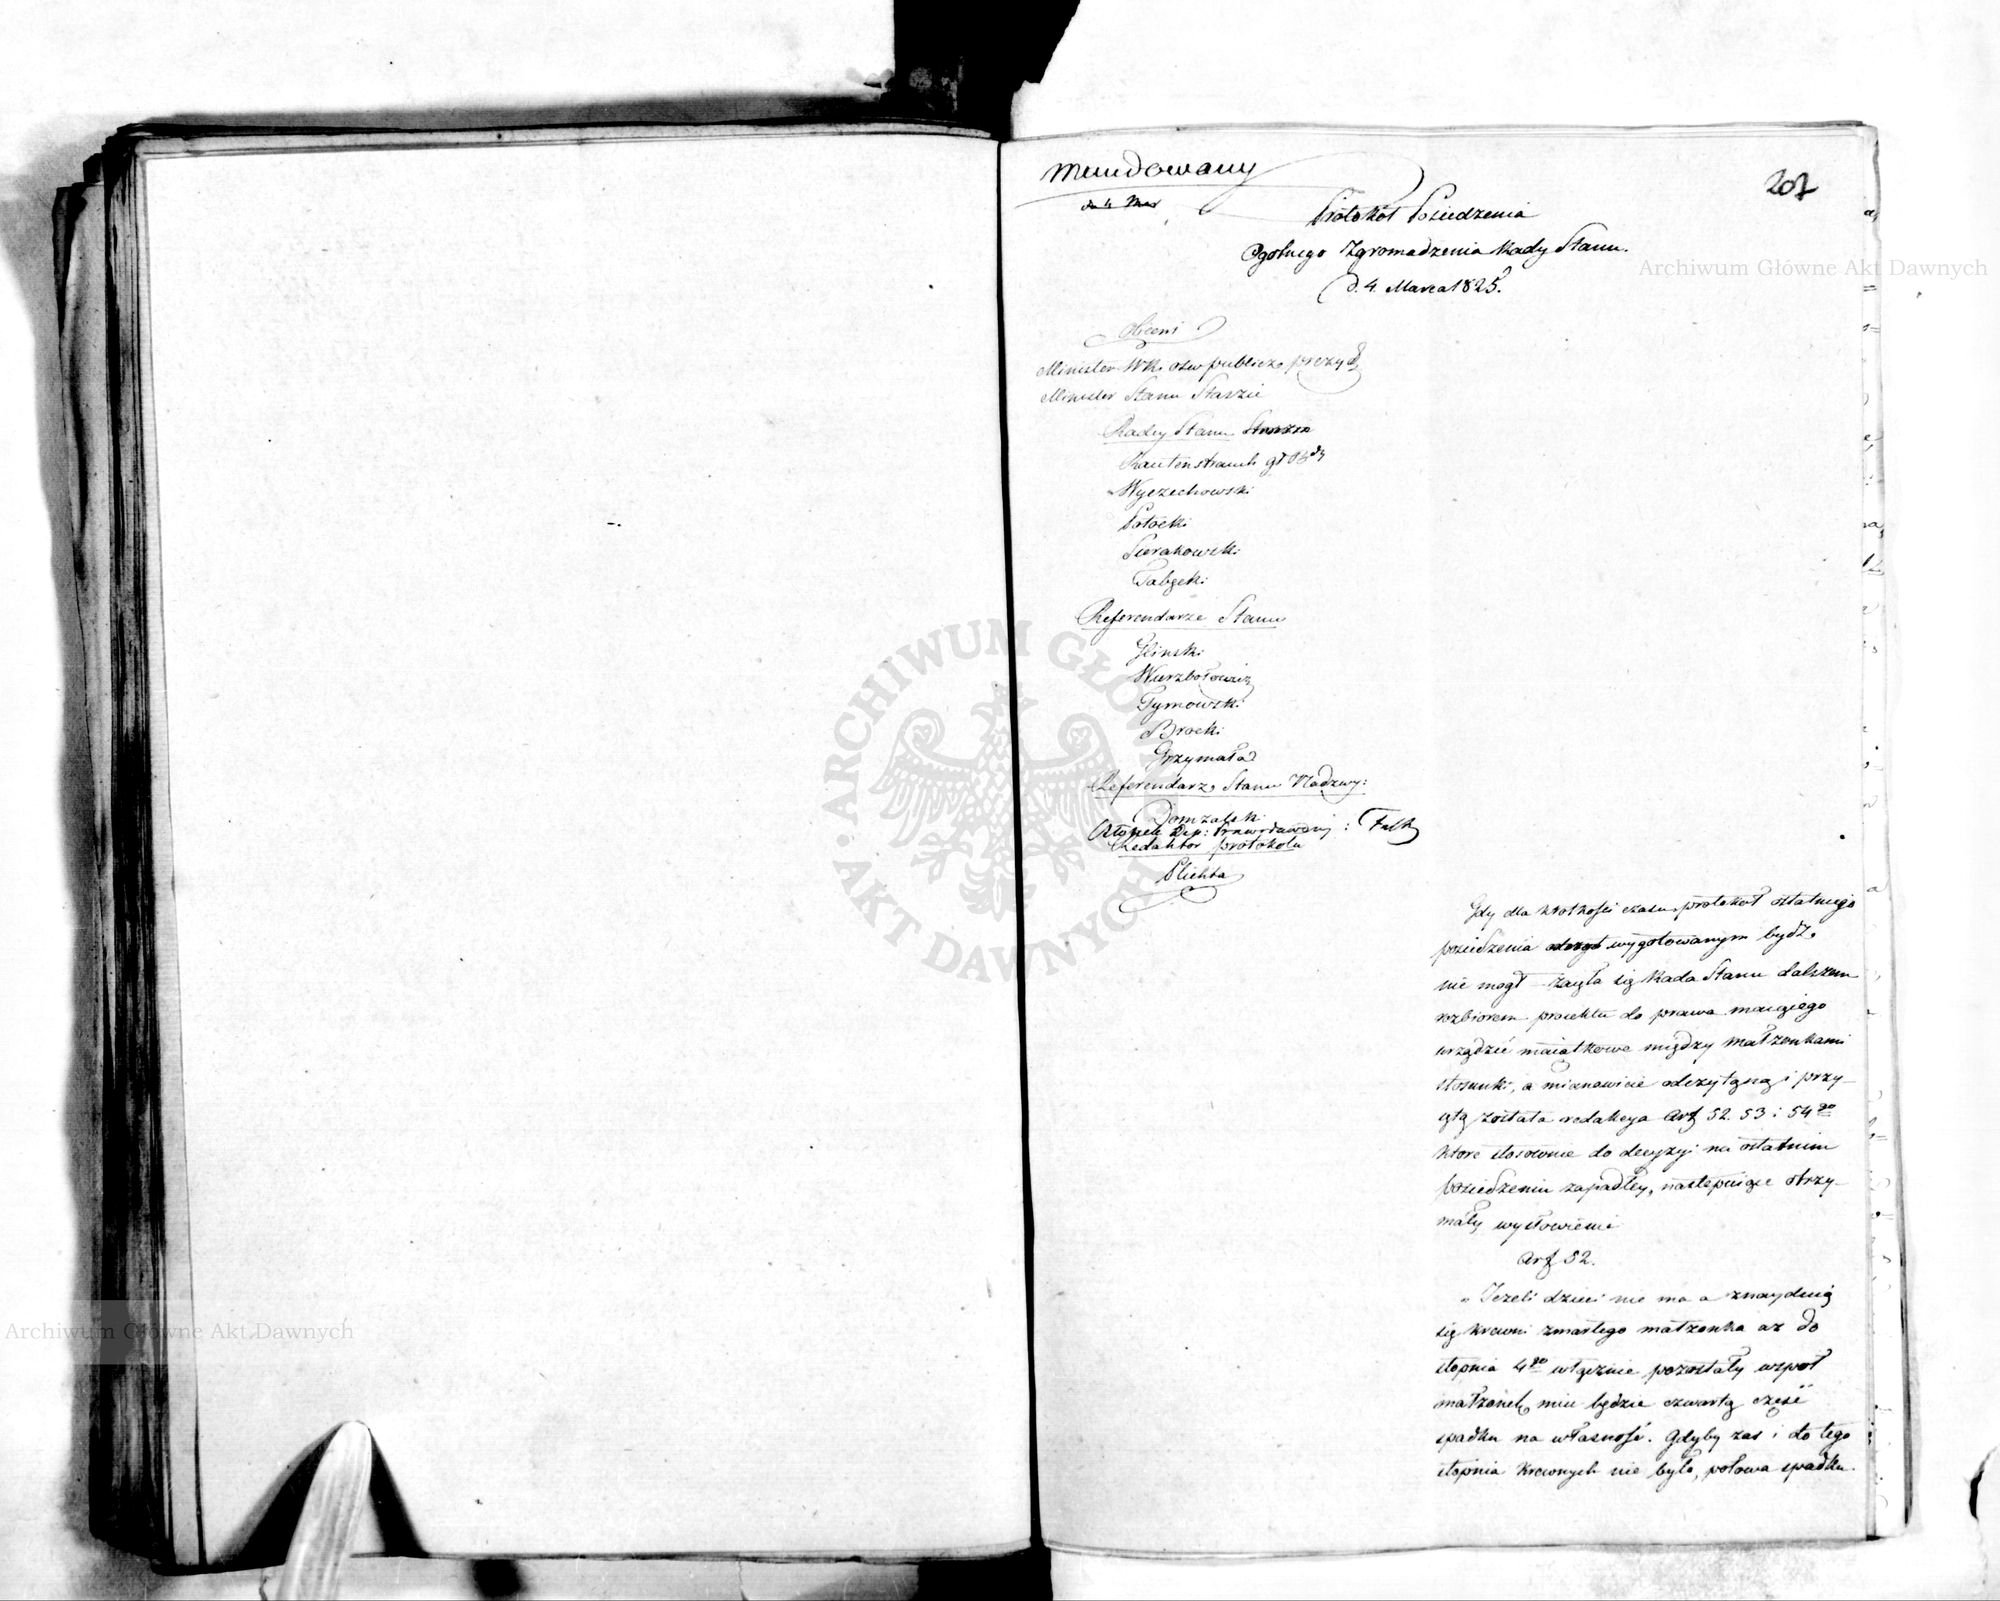 Mundowany
207
Protokół Posiedzenia
Ogólnego Zgromadzenia Rady Stanu.
d. 4. Marca 1825.
Obecni
Minister WR. ośw publicz. prezyd
Minister Stanu Staszic
Radcy Stanu
Rautenstrauch
Wyczechowski
Potocki
Sierakowski
Tabęcki
Referendarze Stanu
Glinski
Wierzbołowicz
Tymowski
Brocki
Grzymała
Referendarz Stanu Nadzwy:
Domzalski
Członek Dep: Prawodawczy: Falk
Redaktor protokolu
Plichta
Gdy dla krotkości czasu protokół ostatniego
posiedzenia wygotowanym bydz
nie mogł zaięła się Rada Stanu dalszem
rozbiorem proiektu do prawa maiącego
urządzić maiątkowe między małzonkami
stosunki, a mianowicie odczytaną i przy-
iętą została redakcya Art 52. 53 i 54go
ktore stosownie do decyzyi na ostatnim
posiedzeniu zapadłey, następuiące otrzy-
mały wysłowienie
Art 52.
„Jezeli dzieci nie ma a znayduią
się krewni zmarłego małzonka az do
stopnia 4go włącznie pozostały wspoł
małzonek, miec będzie czwartą część
spadku na własność. Gdyby zas i do tego
stopnia krewnych nie było, połowa spadku
Archiwum Główne Akt Dawnych
Archiwum Główne Akt Dawnych
ARCHIWUM GŁÓWNE AKT DAWNYCH